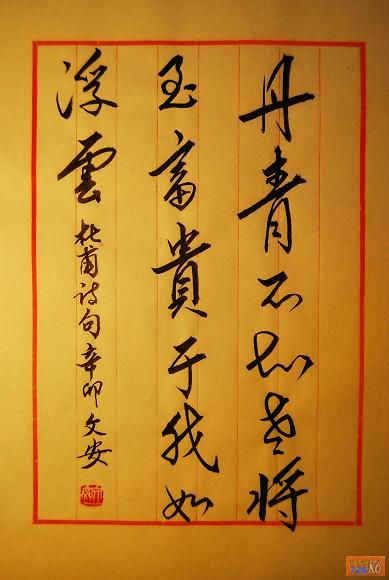 丹青不知老将
至富貴于我如
浮雲 杜甫诗句 辛卯文安
K6